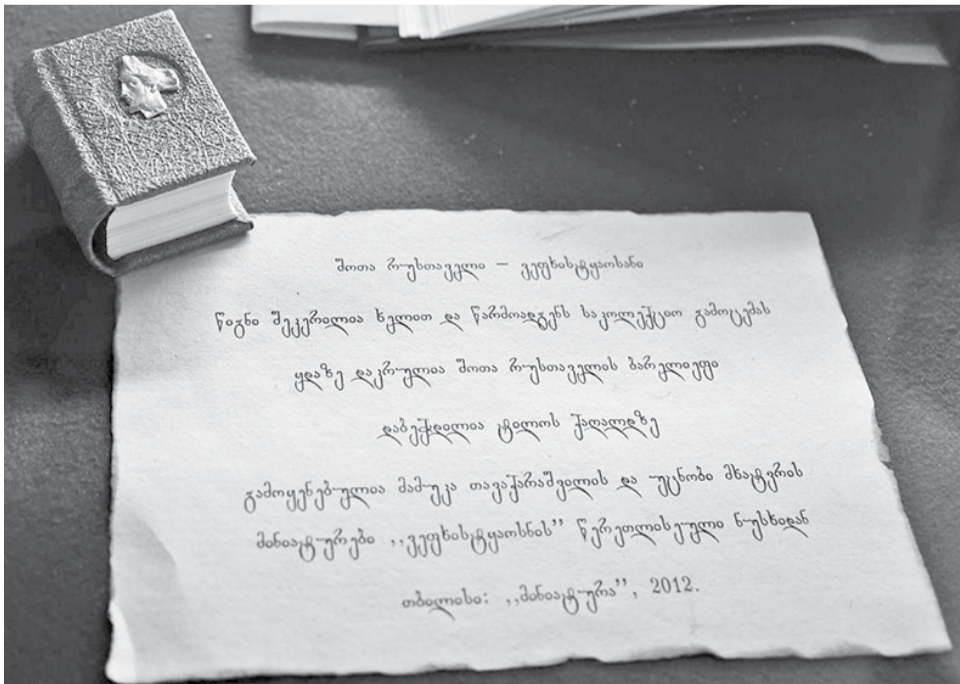 შოთა რუსთაველი – ვეფხისტყაოსანი
წიგნი შეკერილია ხელით და წარმოადგენს საკოლექციო გამოცემას
ყდაზე დაკრულია შოთა რუსთაველის ბარელიეფი
დაბეჭდილია ტილოს ქაღალდზე
გამოყენებულია მამუკა თავაქარაშვილის და უცნობი მხატვრის
მინიატურები ,,ვეფხისტყაოსნის” წერეთლისეული ნუსხიდან
თბილისი: ,,მინიატურა”, 2012.